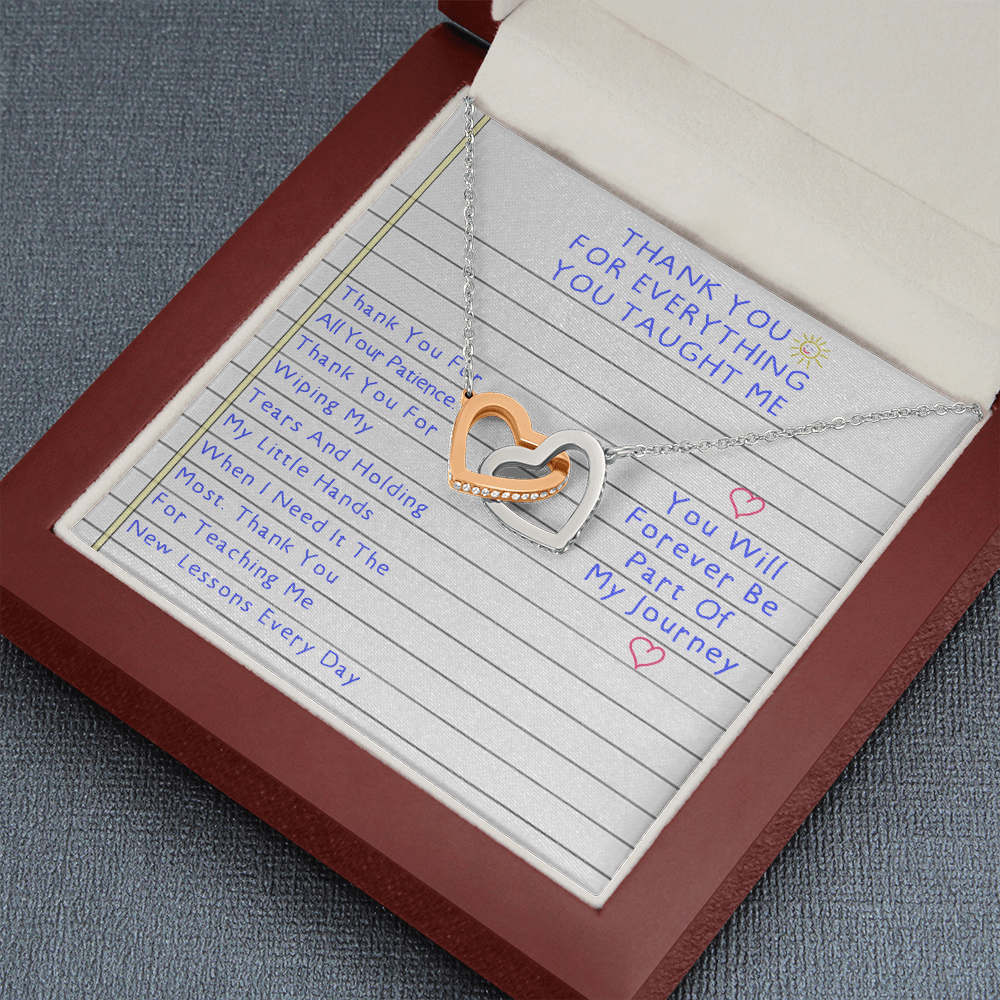 THANK YOU
FOR EVERYTHING
YOU TAUGHT ME
Thank You For
All Your Patience.
Thank You For
Wiping My
Tears And Holding
My Little Hands
When I Need It The
Most. Thank You
For Teaching Me
New Lessons Every Day
You Will
Forever Be
Part Of
My Journey